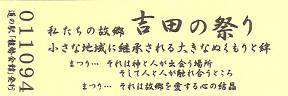 011094
道の駅「龍勢会館」発行
私たちの故郷 吉田の祭り
小さな地域に継承される大きなぬくもりと絆
まつり… それは神と人が出会う場所
そして人と人が触れ合う所
まつり… それは故郷を愛する心の結晶